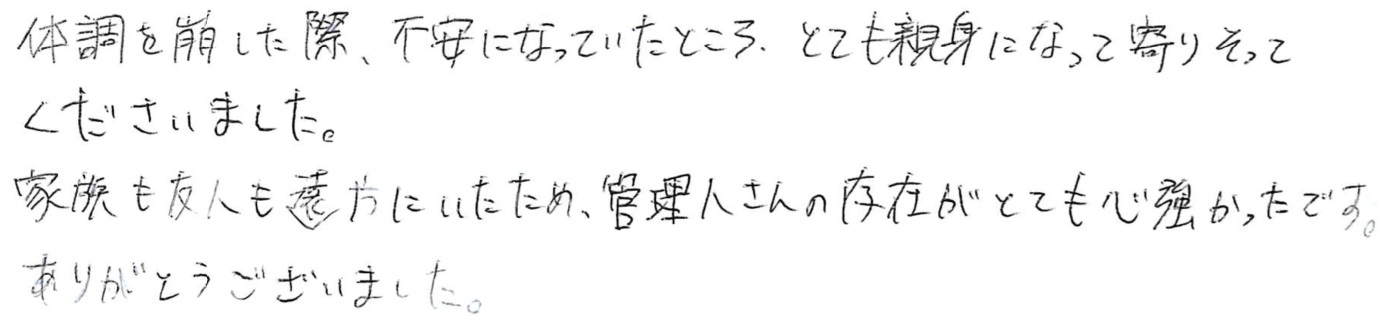 体調を崩した際、不安になっていたところ、とても親身になって寄りそって
くださいました。
家族も友人も遠方にいたため、管理人さんの存在がとても心強かったです。
ありがとうございました。